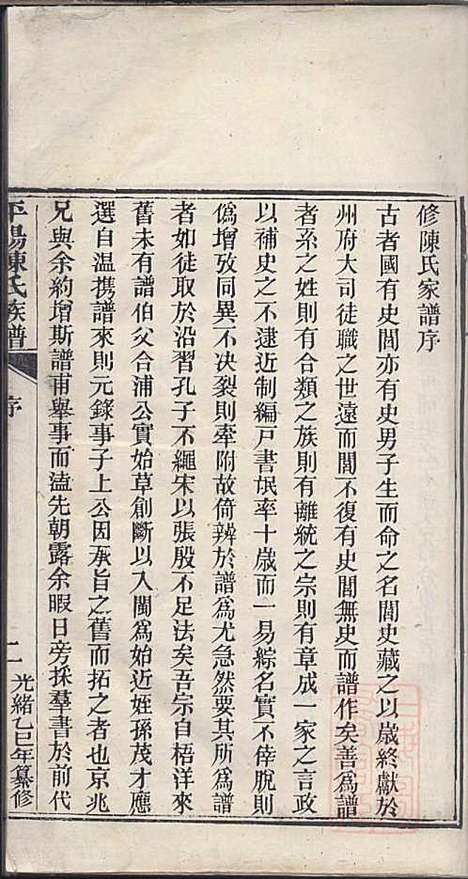 修陳氏家譜序
古者國有史閭亦有史男子生而命之名閭史藏之以歲終獻於
州府大司徒職之世遠而閭不復有史閭無史而譜作矣善為譜
者系之姓則有合類之族則有離統之宗則有章成一家之言政
以補史之不逮近制編戸書氓率十歲而一易綜名實不倖脫則
偽增攷同異不决裂則牽附故倚辨於譜為尤急然要其所為譜
者如徒取於沿習孔子不繩宋以張殷不足法矣吾宗自梧洋來
舊未有譜伯父合浦公實始草創斷以入閩為始近姪孫茂才應
選自温携譜來則元錄事子上公因承旨之舊而拓之者也京兆
兄與余約增斯譜甫舉事而溘先朝露余暇日旁採羣書於前代
平陽陳氏族譜
序
二
光緒乙巳年纂修